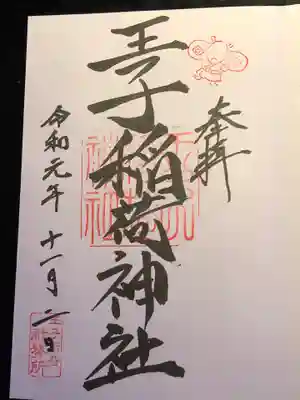 奉拝
王子稲荷神社
令和元年十一月二日